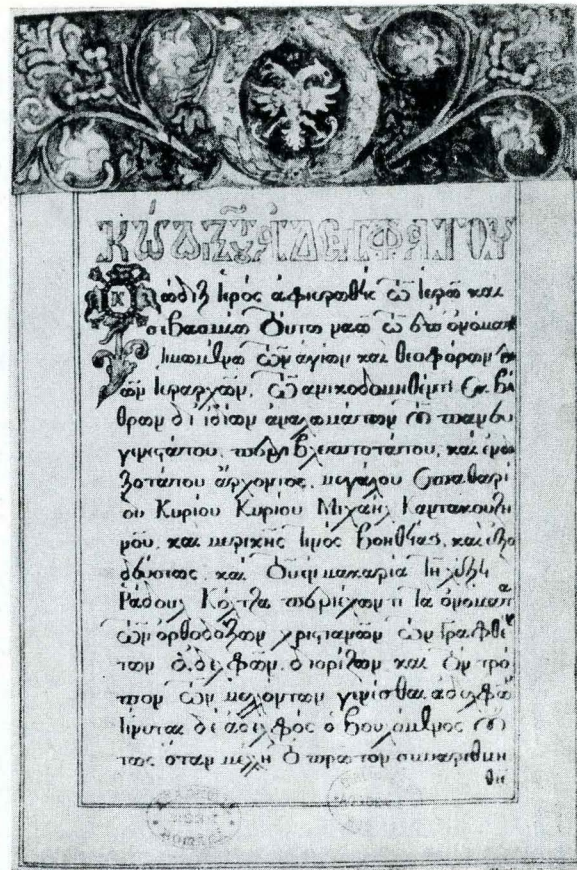 ΚΩΔΙΞ ΤΟΥ ΑΔΕΛΦΑΤΟΥ
Κώδιξ ἱερός ἀφιερωθείς τῷ ἱερῷ καὶ
σεβασμίῳ τούτῳ ναῷ τῷ ὀνόματι
τιμωμένῳ τῶν ἁγίων καὶ θεοφόρων
τῶν ἱεραρχῶν, τῷ ἀνοικοδομηθέντι ἐκ βά
θρων δι' ἰδίων ἀναλωμάτων τοῦ πανευ
γενεστάτου, περιβλεπτοτάτου, καὶ ἐνδο
ξοτάτου ἄρχοντος, μεγάλου Σπαθαρί
ου Κυρίου Κυρίου Μιχαὴλ Καντακουζη
νοῦ, καὶ μερικῆς τινος βοηθείας, καὶ ἐξό
δου
Ράδουλ περιέχων τὰ ὀνόματα
τῶν ὀρθοδόξων χριστιανῶν τῶν γραφθέν
των ἀδελφῶν, διορίζων καὶ τὸν τρό
πον τῶν μελλόντων γενέσθαι ἀδελφῶν
Γίνεται δὲ ἀδελφός ὁ βουλόμενος οὕ
τως ὅταν μέλλῃ τὸ πρῶτον συναριθμη
θῆ